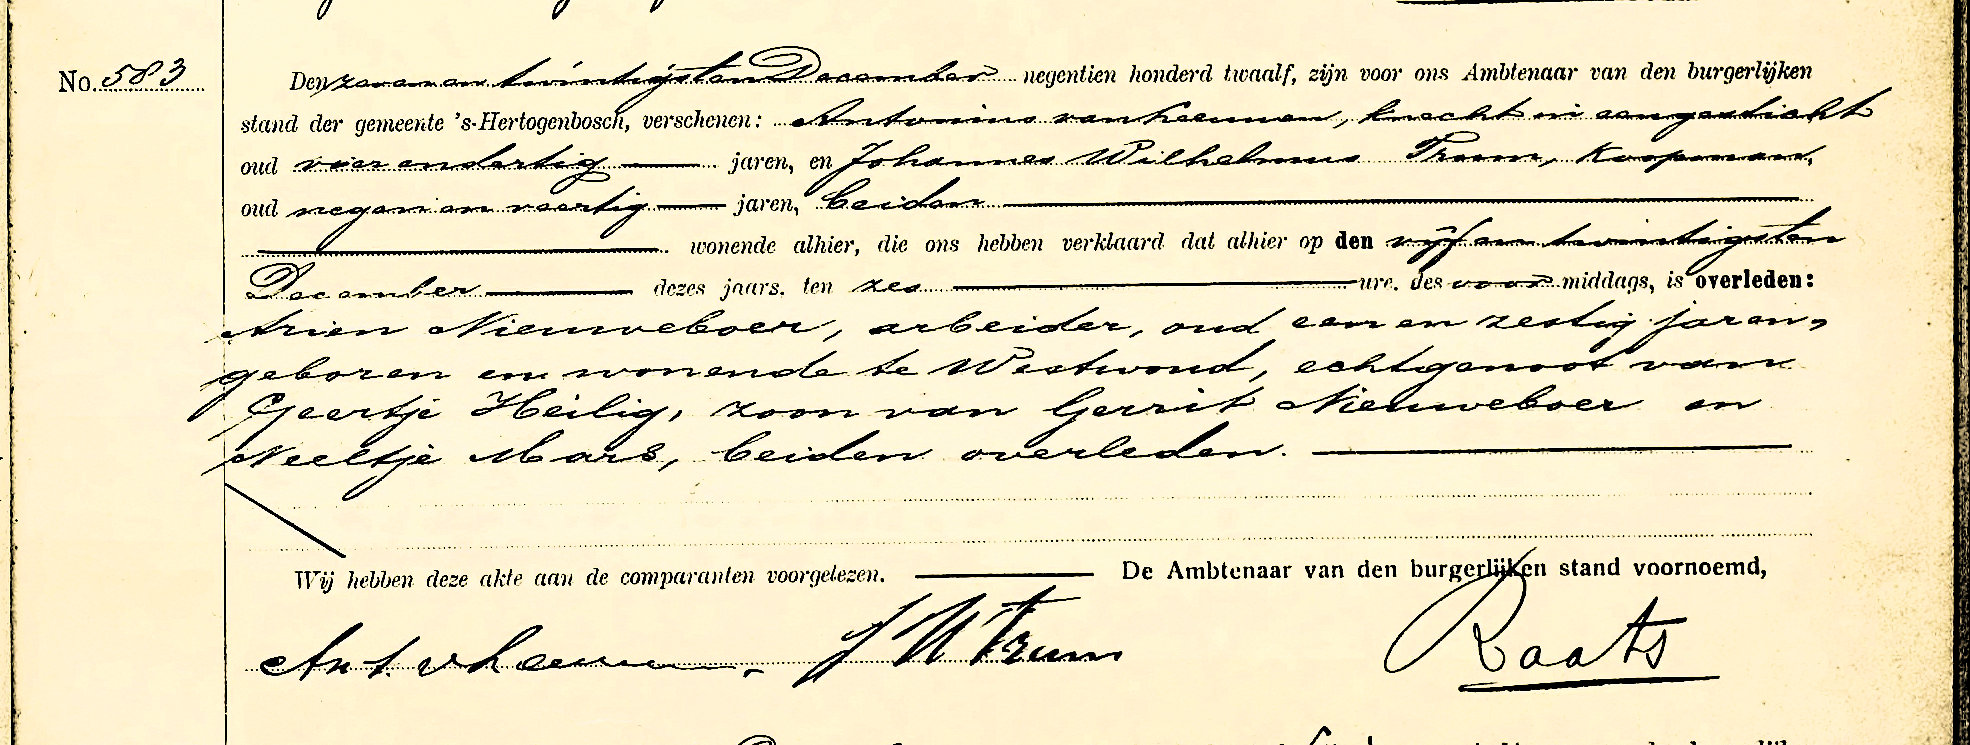 No. 583
Den zeven en twintigsten December negentien honderd twaalf, zijn voor ons Ambtenaar van den burgerlijken
stand der gemeente 's-Hertogenbosch, verschenen: Antonius van Heeumen, knecht in een gesticht
oud vier en dertig jaren, en Johannes Wilhelmus Trum, Koopman,
oud negen en veertig jaren, beiden
wonende alhier, die ons hebben verklaard dat alhier op den vijf en twintigsten
December dezes jaars, ten zes ure, des voor middags, is overleden:
Arien Nieuweboer, arbeider, oud een en zestig jaren,
geboren en wonende te Westwoud, echtgenoot van
Geertje Heilig, zoon van Gerrit Nieuweboer en
Neeltje Mars, beiden overleden.
Wij hebben deze akte aan de comparanten voorgelezen. De Ambtenaar van den burgerlijken stand voornoemd,
Ant. v Heeumen. J W Trum Raats